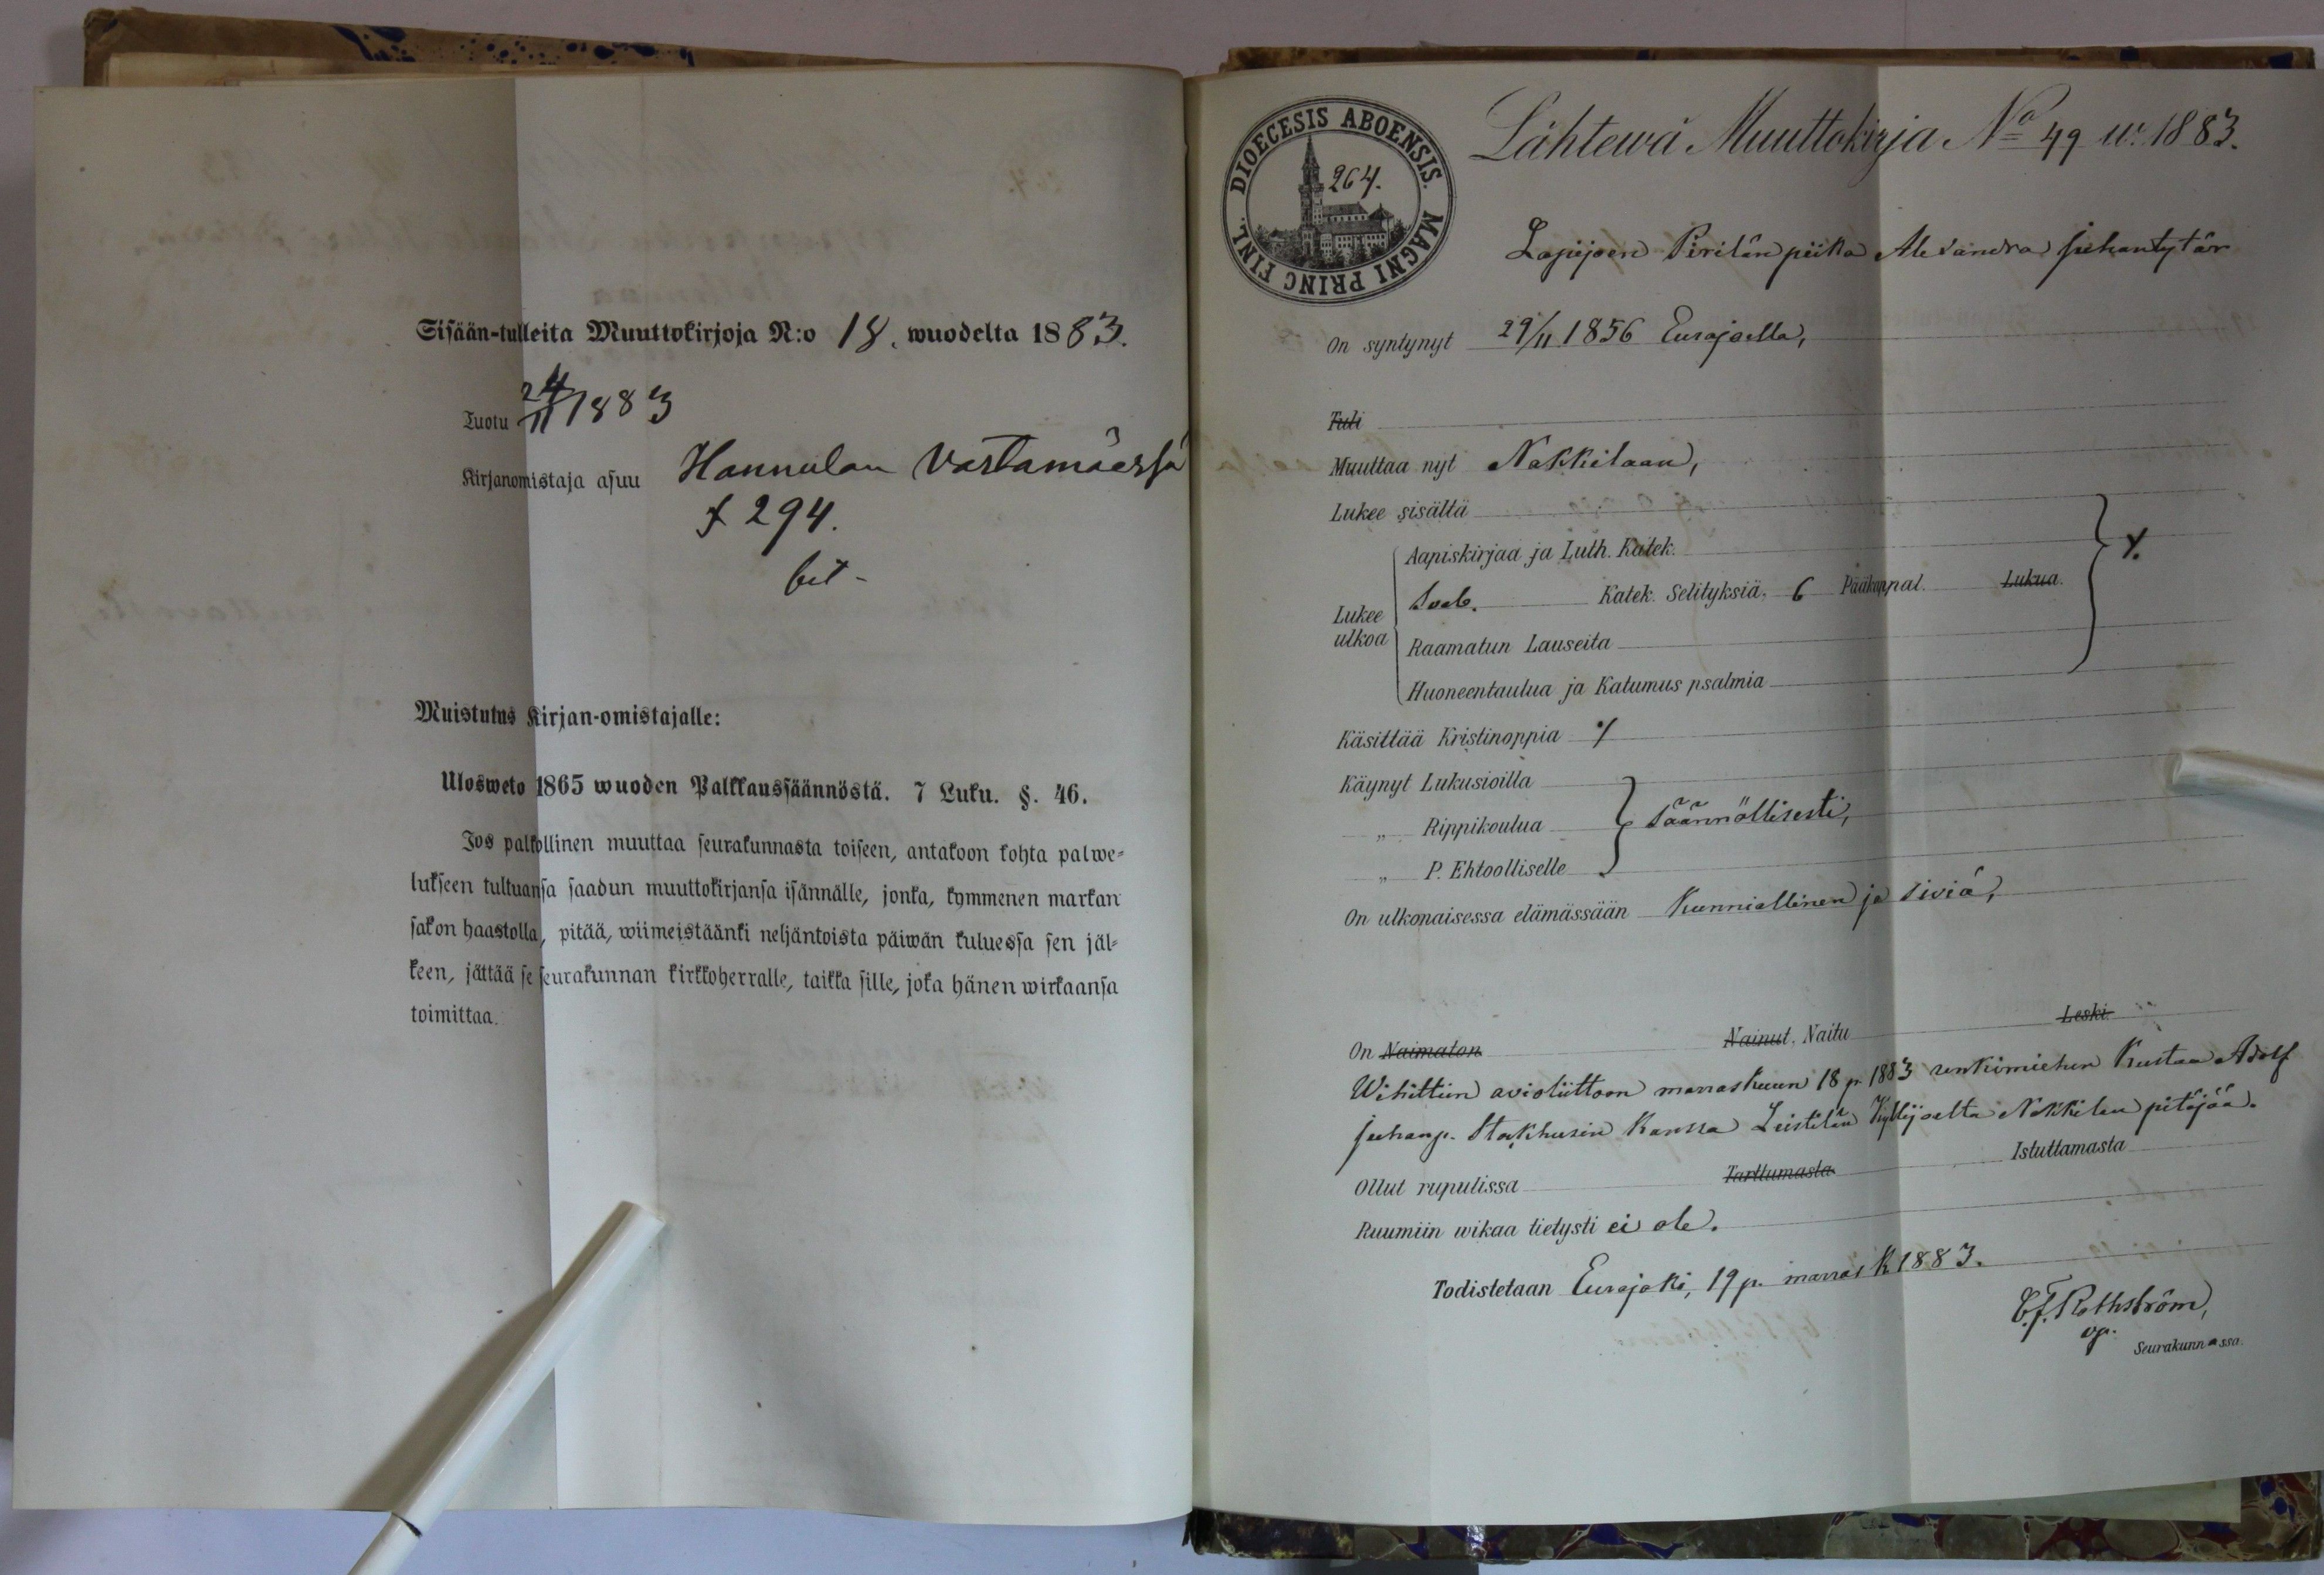 Sisään-tulleita Muuttokirjoja N:o 18. wuodelta 1883.
Tuotu 24/11 1883
Kirjanomistaja asuu Hannulan Vastamäessä
f 294.
Muistutus Kirjan-omistajalle:
Ulosweto 1865 wuoden Palkkaussäännöstä. 7 Luku. §. 46.
Jos palkollinen muuttaa seurakunnasta toiseen, antakoon kohta palwe-
lukseen tultuansa saadun muuttokirjansa isännälle, jonka, kymmenen markan
sakon haastolla, pitää, wiimeistäänki neljäntoista päiwän kuluessa sen jäl-
keen, jättää se seurakunnan kirkkoherralle, taikka sille, joka hänen wirkaansa
toimittaa.
DIOECESIS ABOENSIS. MAGNI PRINC FINL.
264.
Lähtewä Muuttokirja No 49 w. 1883.
Lapijoen Pirilän piika Alexandra Juhantytär
On syntynyt 29/11 1856 Eurajoella,
Tuli
Muuttaa nyt Nakkilaan,
Lukee sisältä
Lukee ulkoa
Aapiskirjaa ja Luth. Katek.
Sveb. Katek. Selityksiä, 6 Pääkappal. Lukua.
Raamatun Lauseita
Huoneentaulua ja Katumus psalmia
Käsittää Kristinoppia
Käynyt Lukusioilla
„ Rippikoulua säännöllisesti,
„ P. Ehtoolliselle
On ulkonaisessa elämässään Kunniallinen ja siviä,
On Naimaton Nainut, Naitu Leski
Wihittiin avioliittoon marraskuun 18 p. 1883 renkimiehen Kustaa Adolf
Juhanp. Stakhusin kanssa Leistilän Kyllijoelta Nakkilan pitäjää.
Ollut rupulissa Tarttumasta Istuttamasta
Ruumiin wikaa tietysti ei ole.
Todistetaan Eurajoki, 19 p. marrask 1883.
C. F. Rothström,
vp.
Seurakunnassa.